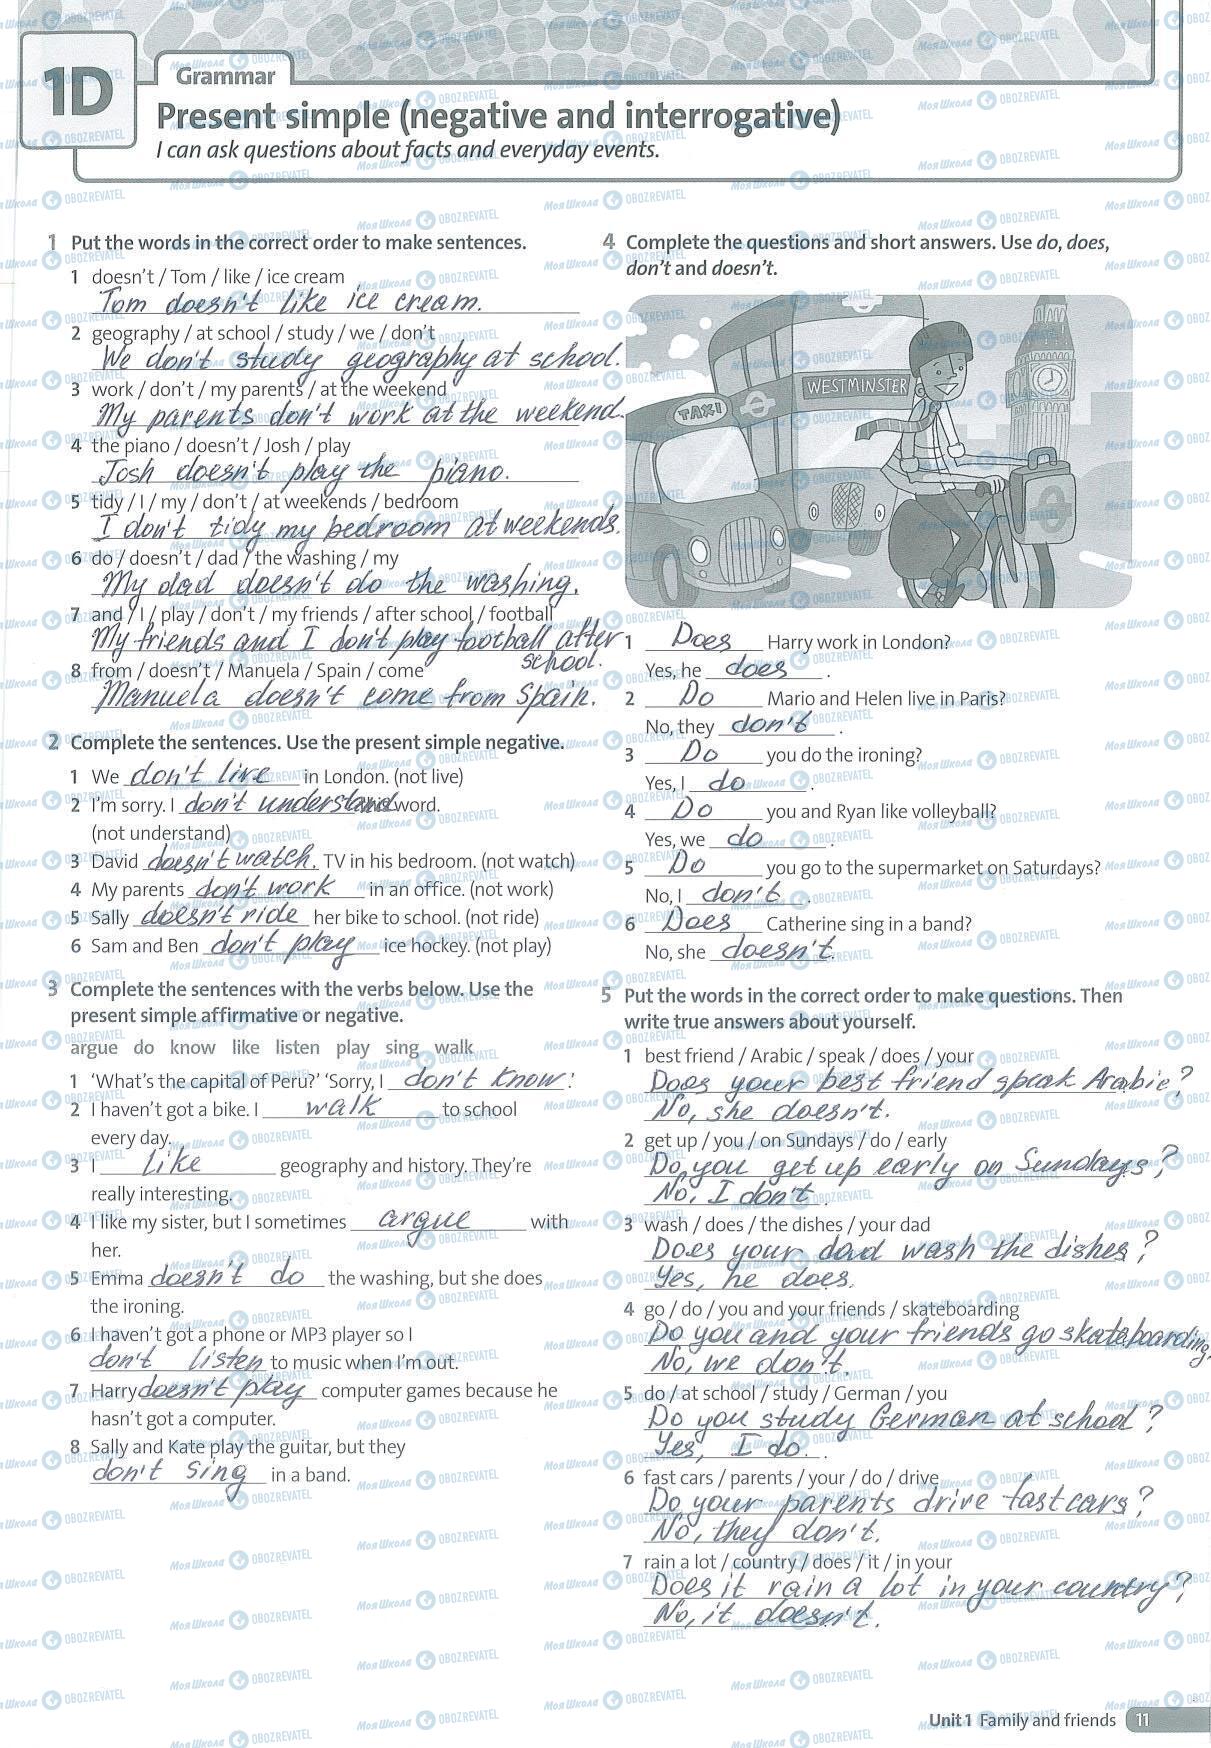 1D
Grammar
Present simple (negative and interrogative)
I can ask questions about facts and everyday events.
1 Put the words in the correct order to make sentences.
1 doesn't / Tom / like / ice cream
Tom doesn't like ice cream.
2 geography / at school / study / we / don't
We don't study geography at school.
3 work / don't / my parents / at the weekend
My parents don't work at the weekend.
4 the piano / doesn't / Josh / play
Josh doesn't play the piano.
5 tidy / I / my / don't / at weekends / bedroom
I don't tidy my bedroom at weekends.
6 do / doesn't / dad / the washing / my
My dad doesn't do the washing.
7 and / I / play / don't / my friends / after school / football
My friends and I don't play football after
school.
8 from / doesn't / Manuela / Spain / come
Manuela doesn't come from Spain.
2 Complete the sentences. Use the present simple negative.
1 We don't live in London. (not live)
2 I'm sorry. I don't understand word.
(not understand)
3 David doesn't watch. TV in his bedroom. (not watch)
4 My parents don't work in an office. (not work)
5 Sally doesn't ride her bike to school. (not ride)
6 Sam and Ben don't play ice hockey. (not play)
3 Complete the sentences with the verbs below. Use the
present simple affirmative or negative.
argue do know like listen play sing walk
1 'What's the capital of Peru?' 'Sorry, I don't know.'
2 I haven't got a bike. I walk to school
every day.
3 I like geography and history. They're
really interesting.
4 I like my sister, but I sometimes argue with
her.
5 Emma doesn't do the washing, but she does
the ironing.
6 I haven't got a phone or MP3 player so I
don't listen to music when I'm out.
7 Harry doesn't play computer games because he
hasn't got a computer.
8 Sally and Kate play the guitar, but they
don't sing in a band.
4 Complete the questions and short answers. Use do, does,
don't and doesn't.
TAXI
WESTMINSTER
1 Does Harry work in London?
Yes, he does.
2 Do Mario and Helen live in Paris?
No, they don't.
3 Do you do the ironing?
Yes, I do.
4 Do you and Ryan like volleyball?
Yes, we do.
5 Do you go to the supermarket on Saturdays?
No, I don't.
6 Does Catherine sing in a band?
No, she doesn't.
5 Put the words in the correct order to make questions. Then
write true answers about yourself.
1 best friend / Arabic / speak / does / your
Does your best friend speak Arabic?
No, she doesn't.
2 get up / you / on Sundays / do / early
Do you get up early on Sundays?
No, I don't.
3 wash / does / the dishes / your dad
Does your dad wash the dishes?
Yes, he does.
4 go / do / you and your friends / skateboarding
Do you and your friends go skateboarding?
No, we don't.
5 do / at school / study / German / you
Do you study German at school?
Yes, I do.
6 fast cars / parents / your / do / drive
Do your parents drive fast cars?
No, they don't.
7 rain a lot / country / does / it / in your
Does it rain a lot in your country?
No, it doesn't.
Unit 1 Family and friends 11
МояШкола OBOZREVATEL